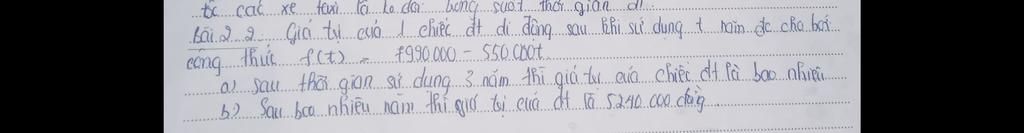 tốc các xe taxi là ko đổi trong suốt thời gian đi
Bài 2.2 Giá trị của 1 chiếc đt di động sau khi sử dụng t năm đc cho bởi
công thức f(t) = 7990.000 - 550.000t
a) sau thời gian sử dụng 3 năm thì giá trị của chiếc đt là bao nhiêu
b) Sau bao nhiêu năm thì giá trị của đt là 5240.000 đồng